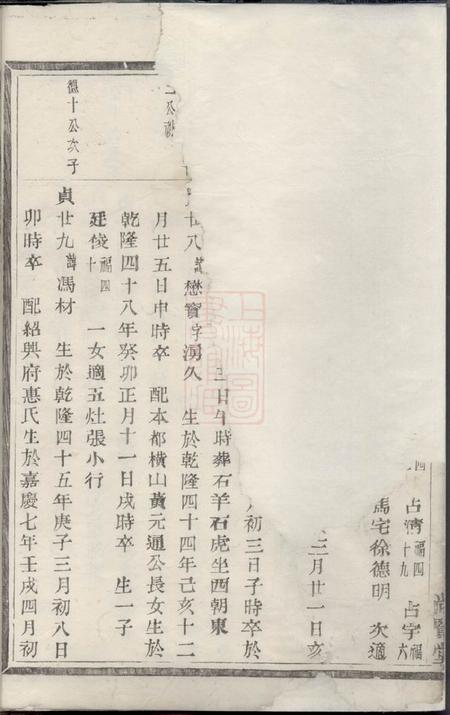 占濟福四十九 占宇福六
馮宅徐德明 次適
三月廿一日亥
初三日子時卒於
三日午時葬石羊石虎坐西朝東
廿八諱懋寶字湧久 生於乾隆四十四年己亥十二
月廿五日申時卒 配本都橫山黃元通公長女生於
乾隆四十八年癸卯正月十一日戌時卒 生一子
廷俊福四十 一女適五灶張小行
德十公次子
貞廿九諱馮材 生於乾隆四十五年庚子三月初八日
卯時卒 配紹興府惠氏生於嘉慶七年壬戌四月初